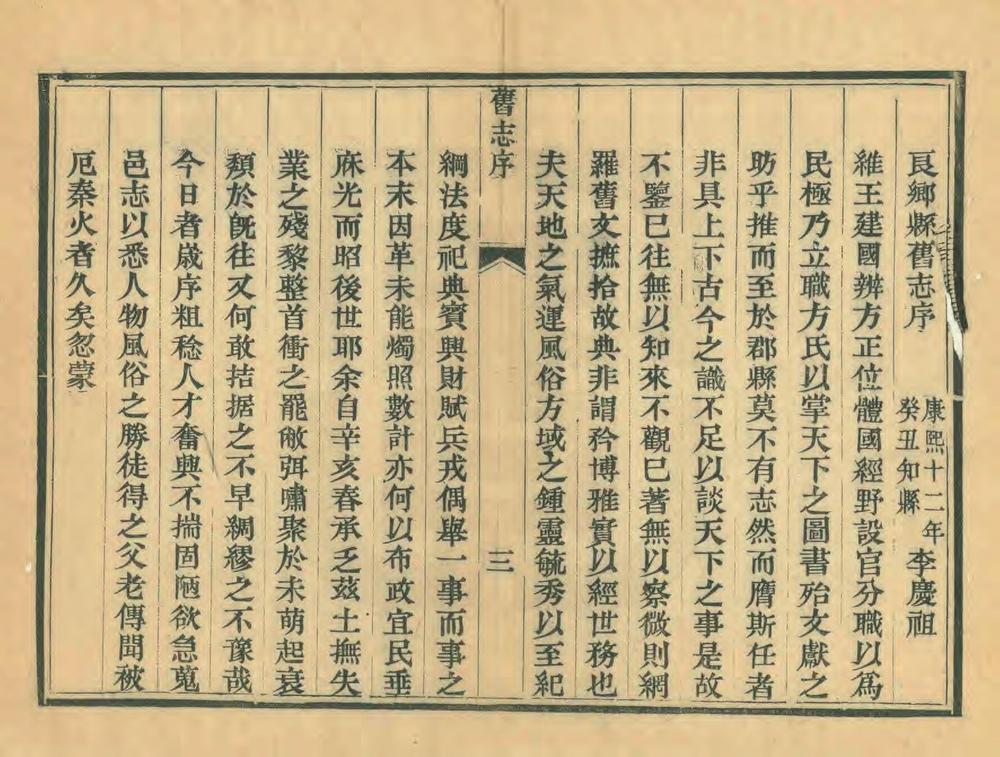 良鄉縣舊志序
康熙十二年
癸丑知縣
李慶祖
維王建國辨方正位體國經野設官分職以爲
民極乃立職方氏以掌天下之圖書殆文獻之
助乎推而至於郡縣莫不有志然而膺斯任者
非具上下古今之識不足以談天下之事是故
不鑒已往無以知來不觀已著無以察微則網
羅舊文摭拾故典非謂矜博雅實以經世務也
夫天地之氣運風俗方域之鍾靈毓秀以至紀
舊志序
三
綱法度祀典賓興財賦兵戎偶舉一事而事之
本末因革未能燭照數計亦何以布政宜民垂
庥光而昭後世耶余自辛亥春承乏茲土撫失
業之殘黎整首衝之罷敝弭嘯聚於未萌起衰
頹於旣往又何敢拮据之不早綢繆之不豫哉
今日者歲序粗稔人才奮興不揣固陋欲急蒐
邑志以悉人物風俗之勝徒得之父老傳聞被
厄秦火者久矣忽蒙